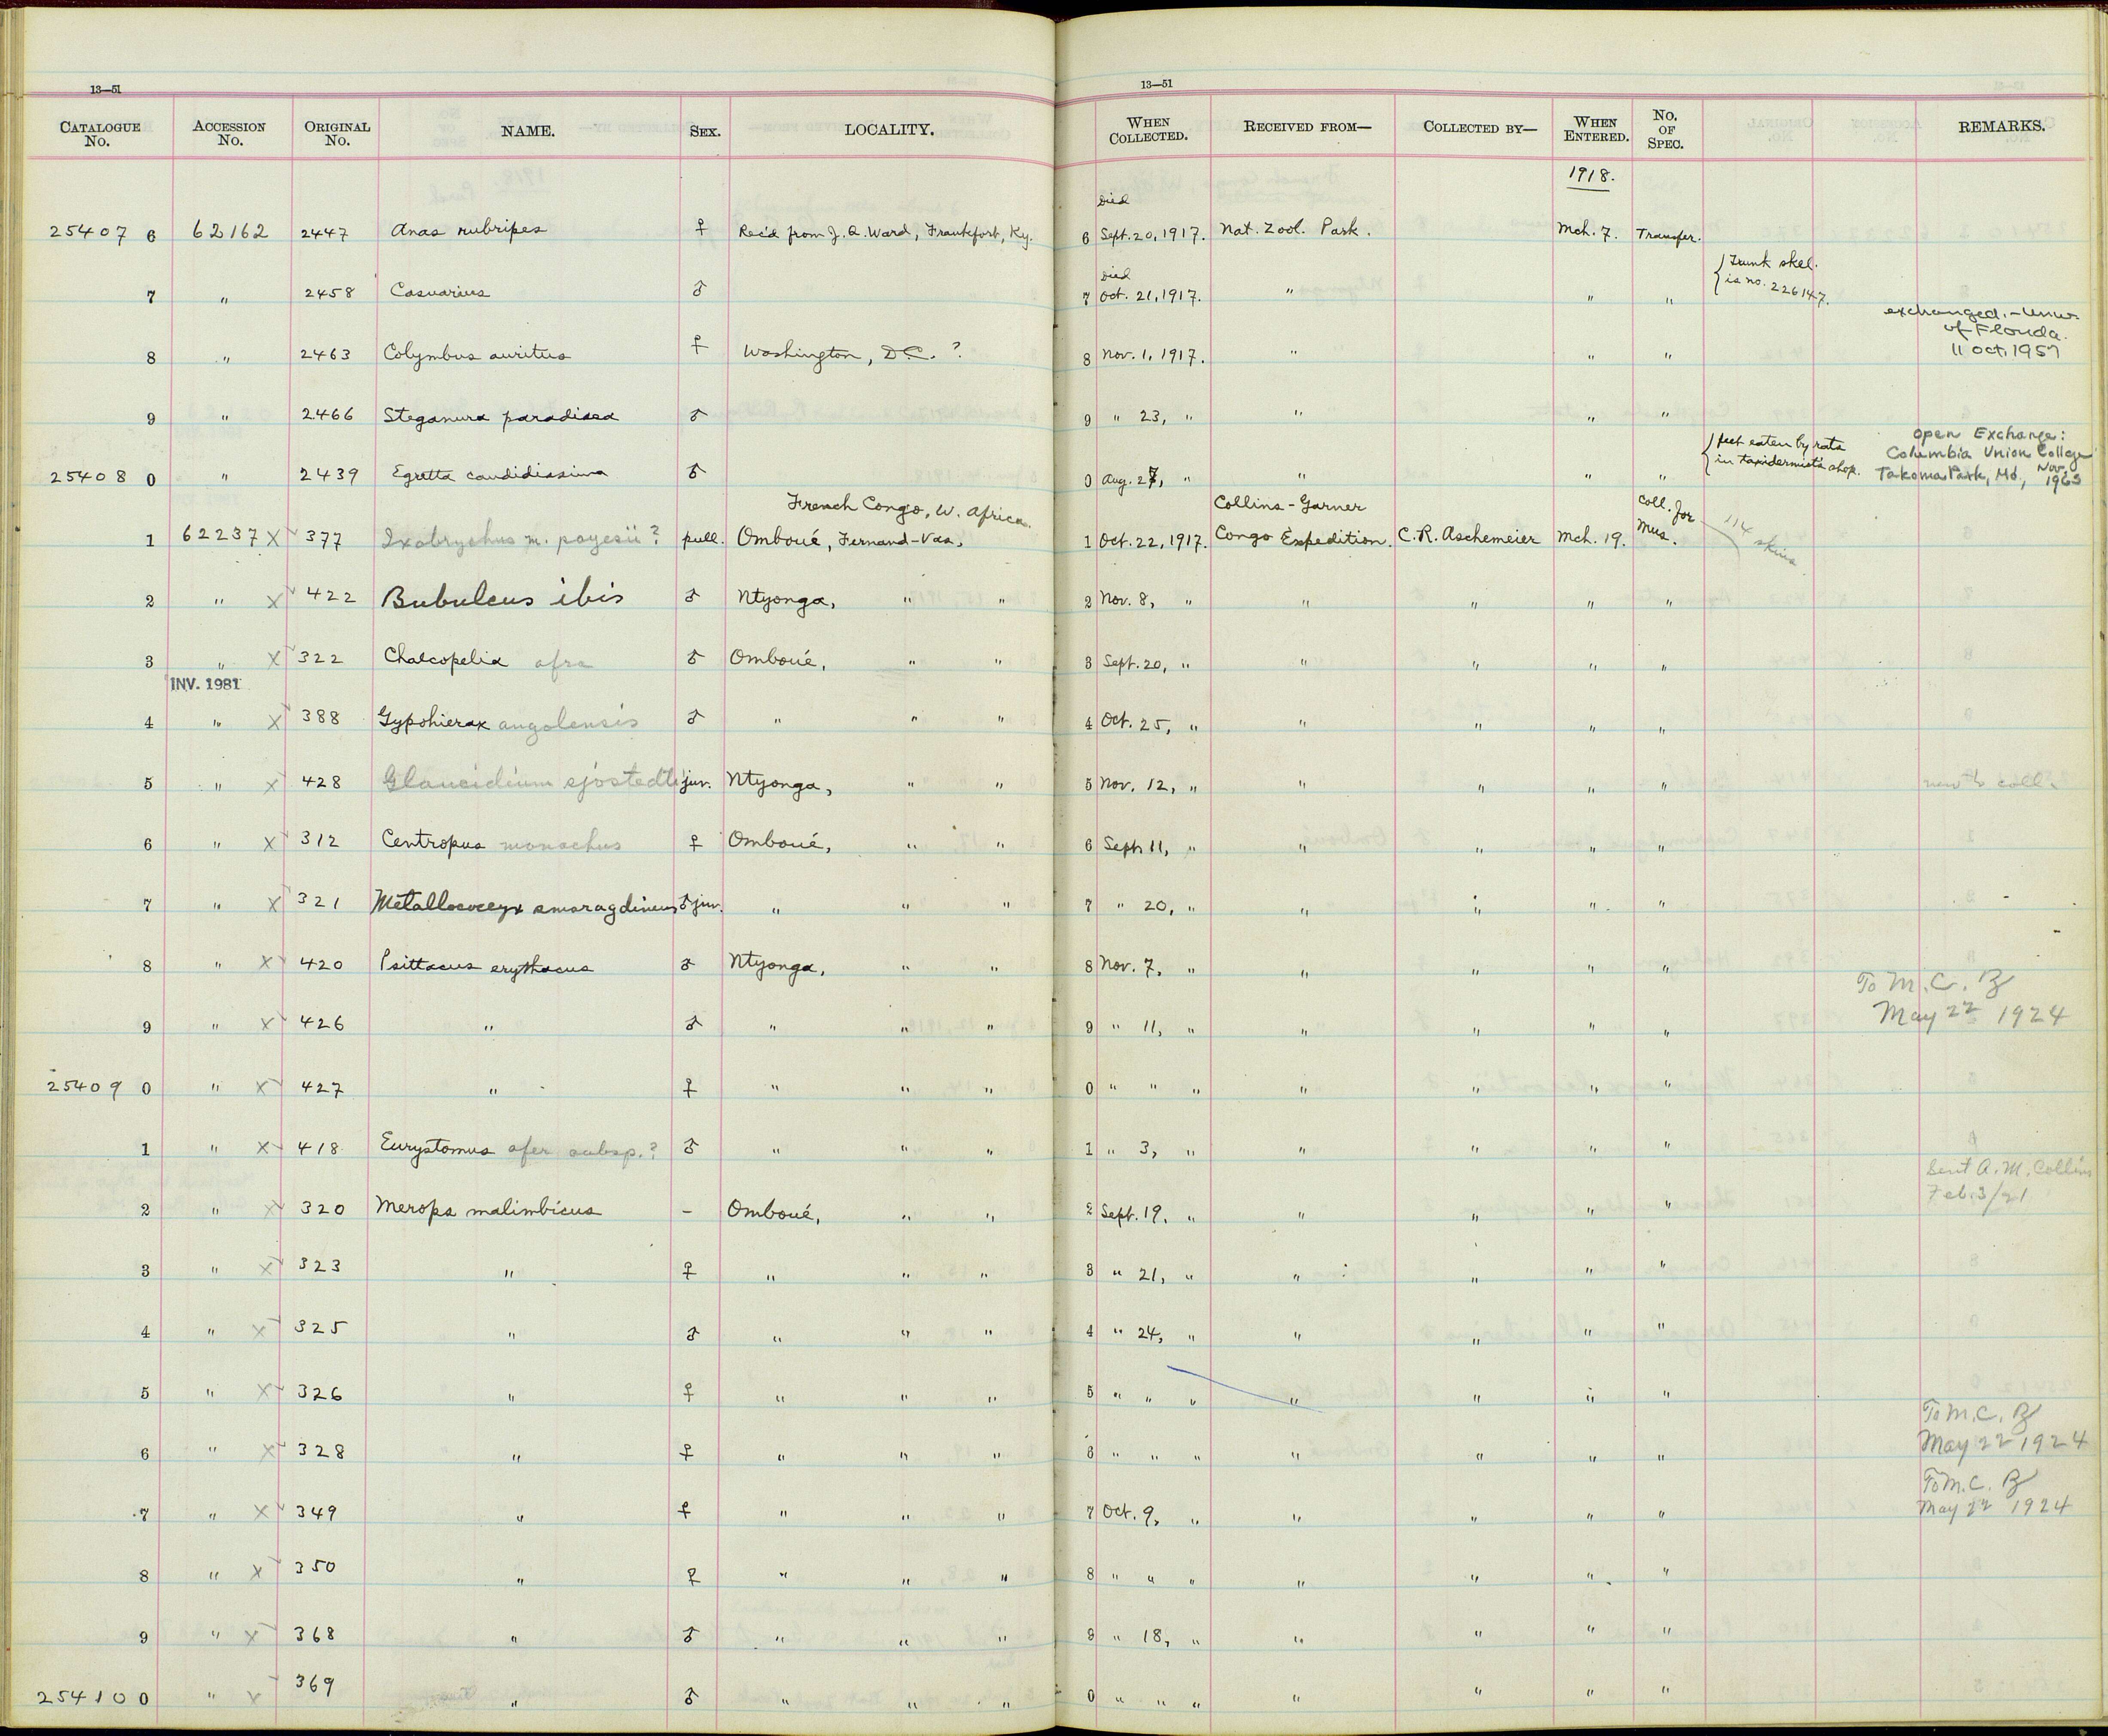 13—51 13—51
CATALOGUE No. ACCESSION No. ORIGINAL No. NAME. SEX. LOCALITY. WHEN COLLECTED. RECEIVED FROM— COLLECTED BY— WHEN ENTERED. No. OF SPEC. REMARKS.
1918.
Died
25407 6 62162 2447 Anas rubripes ♀ Rec'd from J. Q. Ward, Frankfort, Ky. 6 Sept. 20, 1917. Nat. Zool. Park. Mch. 7. Transfer.
Died
7 " 2458 Casuarius ♂ 7 Oct. 21, 1917. " " " { Trunk skel. is no. 226147.
8 " 2463 Colymbus auritus ♀ Washington, D.C. ? 8 Nov. 1, 1917. " " " exchanged. - Univ. of Florida. 11 Oct. 1957
9 " 2466 Steganura paradisea ♂ 9 " 23, " " " "
25408 0 " 2439 Egretta candidissima ♂ 0 Aug. 27, " " " " { feet eaten by rats in taxidermist's shop. Open Exchange: Columbia Union College Takoma Park, Md., Nov. 1963
French Congo, W. Africa. Collins-Garner Coll. for
1 62237 X 377 Ixobrychus m. payesii ? pull. Omboué, Fernand-Vas, 1 Oct. 22, 1917. Congo Expedition. C. R. Aschemeier Mch. 19. Mus. 114 skins
2 " X 422 Bubulcus ibis ♂ Ntyonga, " " 2 Nov. 8, " " " " "
3 " X 322 Chalcopelia afra ♂ Omboué, " " 3 Sept. 20, " " " " "
INV. 1981
4 " X 388 Gypohierax angolensis ♂ " " " 4 Oct. 25, " " " " "
5 " X 428 Glaucidium sjostedti juv. Ntyonga, " " 5 Nov. 12, " " " " " new to coll.
6 " X 312 Centropus monachus ♀ Omboué, " " 6 Sept. 11, " " " " "
7 " X 321 Metallococcyx smaragdineus ♂ juv. " " " 7 " 20, " " " " "
8 " X 420 Psittacus erythacus ♂ Ntyonga, " " 8 Nov. 7, " " " " "
9 " X 426 " ♂ " " " 9 " 11, " " " " " To M. C. Z May 22 1924
25409 0 " X 427 " ♀ " " " 0 " " " " " " "
1 " X 418 Eurystomus afer subsp.? ♂ " " " 1 " 3, " " " " "
2 " X 320 Merops malimbicus – Omboué, " " 2 Sept. 19, " " " " " Sent A. M. Collins Feb. 3/21
3 " X 323 " ♀ " " " 3 " 21, " " " " "
4 " X 325 " ♂ " " " 4 " 24, " " " " "
5 " X 326 " ♀ " " " 5 " " " " " " "
6 " X 328 " ♀ " " " 6 " " " " " " " To M. C. Z May 22 1924
7 " X 349 " ♀ " " " 7 Oct. 9, " " " " " To M. C. Z May 22 1924
8 " X 350 " ♀ " " " 8 " " " " " " "
9 " X 368 " ♂ " " " 9 " 18, " " " " "
25410 0 " X 369 " ♂ " " " 0 " " " " " " "